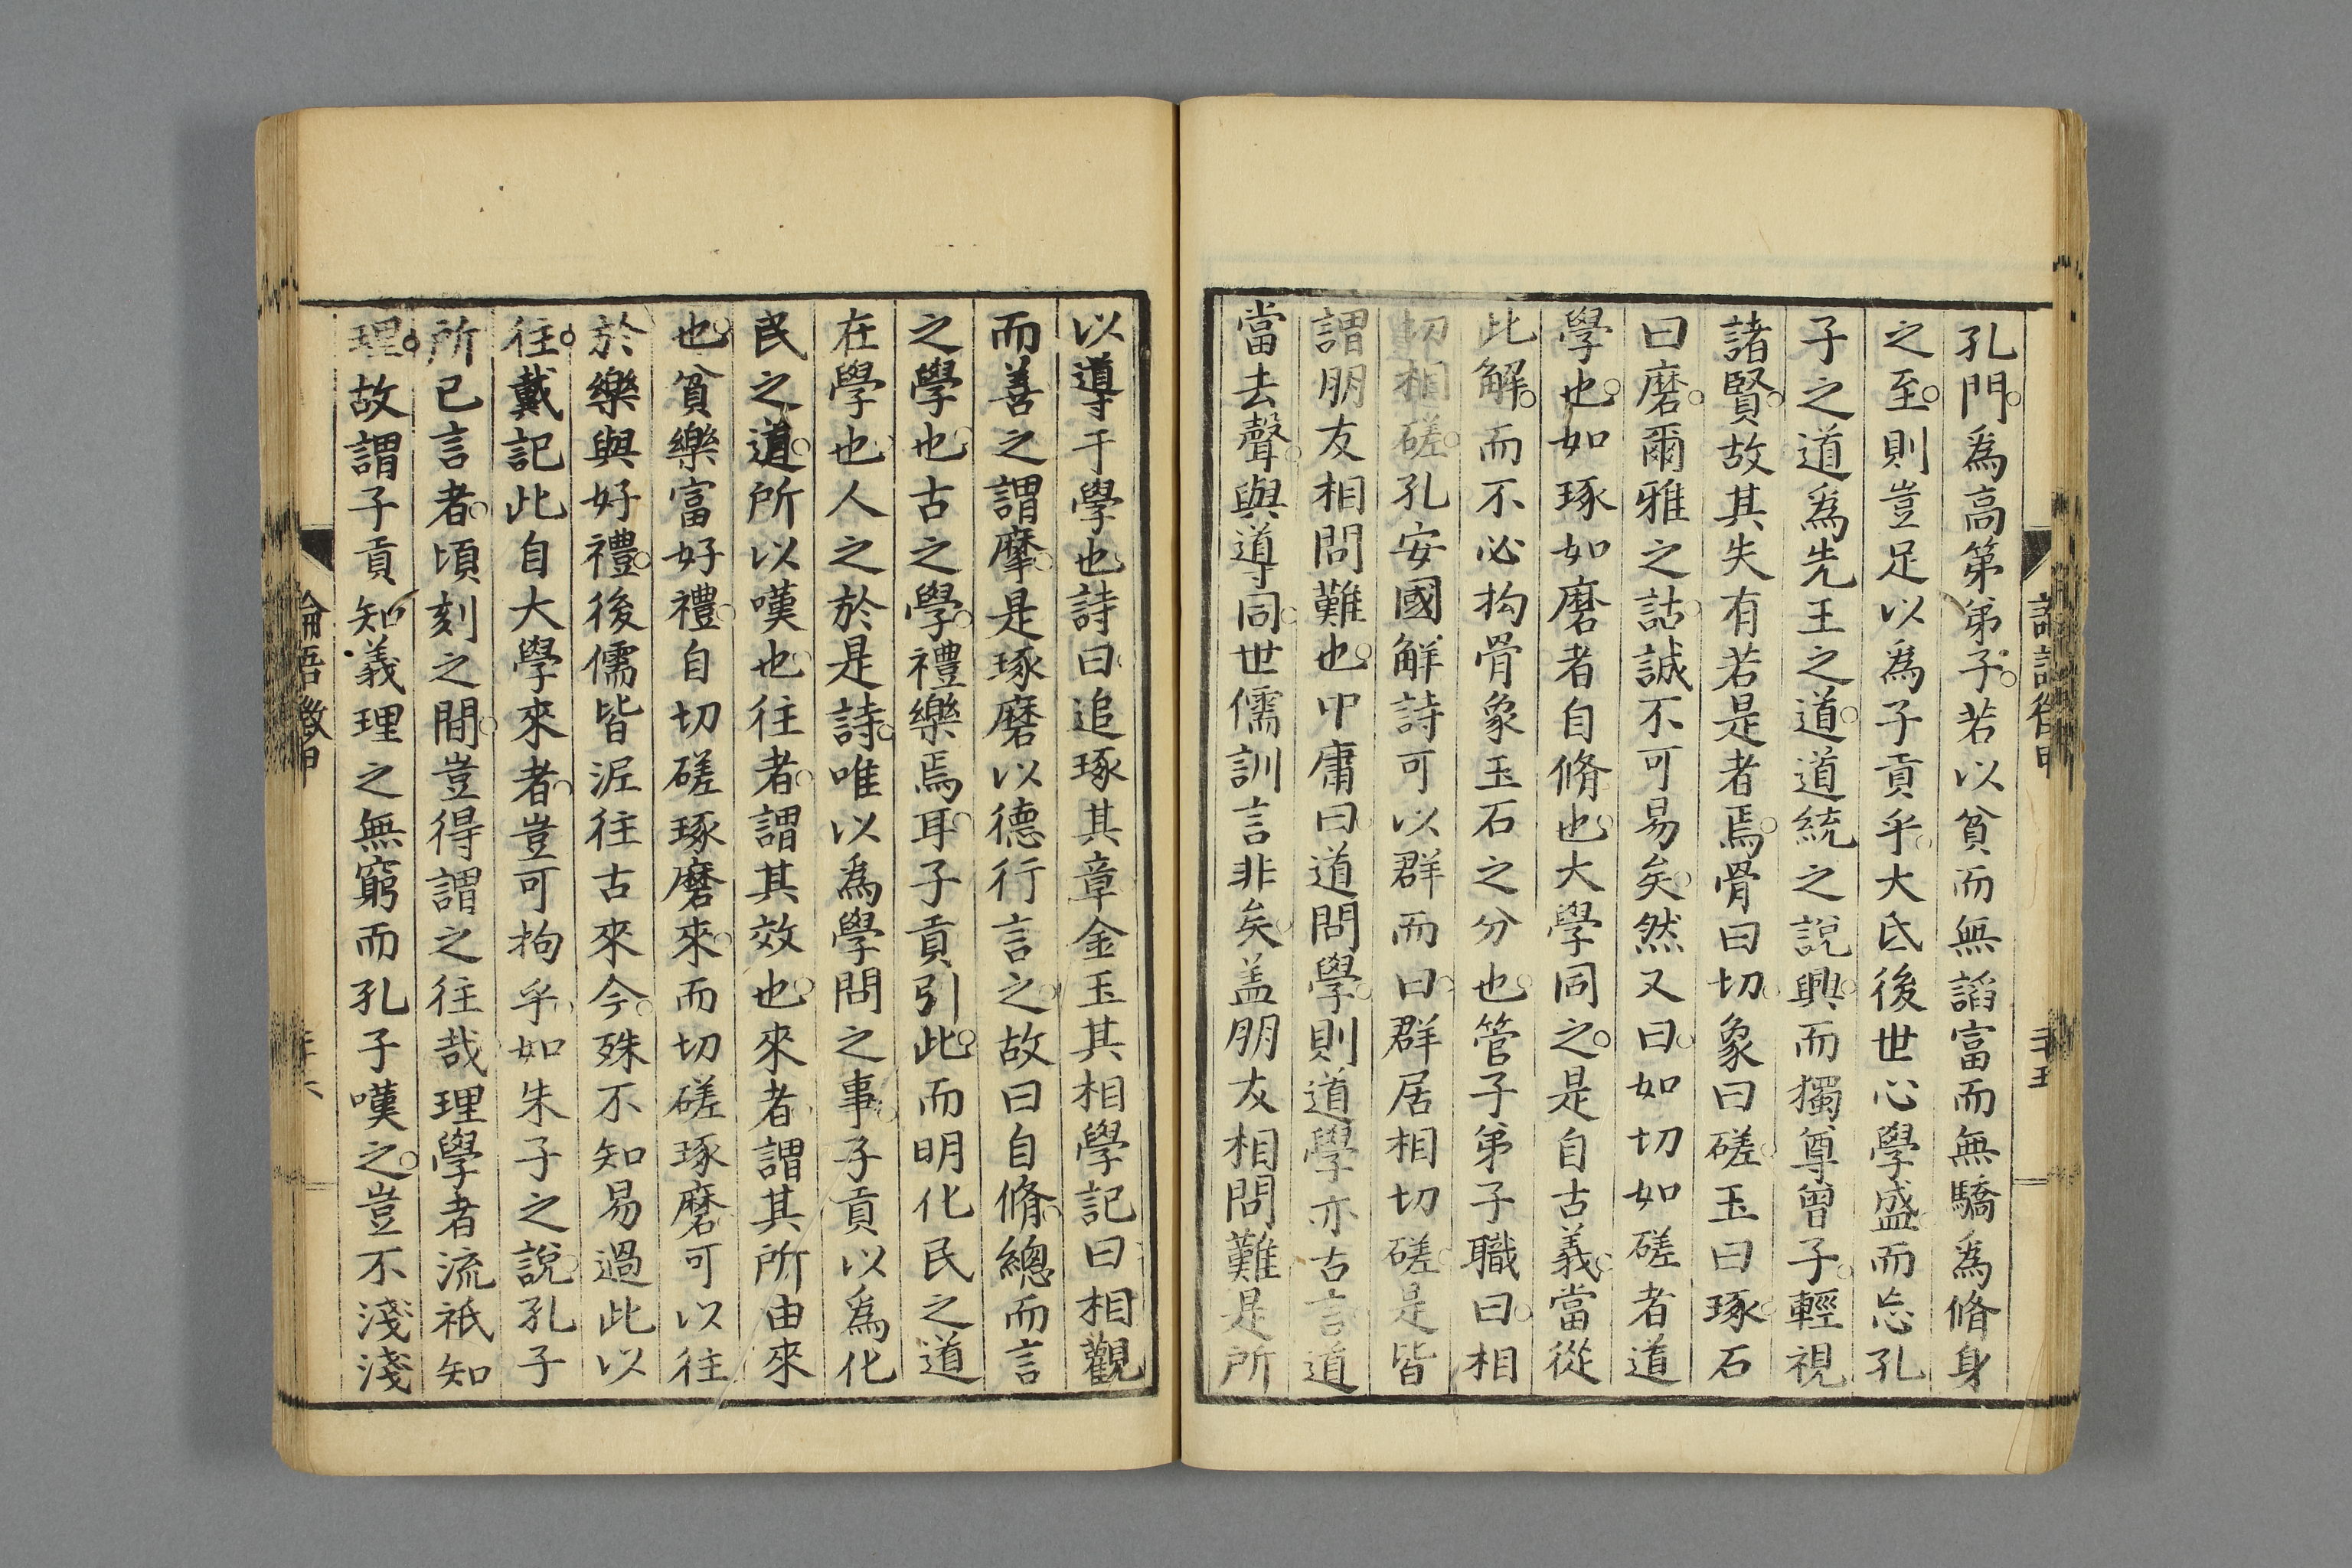 孔門。爲高第弟子。若以貧而無諂富而無驕爲脩身
之至。則豈足以爲子貢乎。大氐後世心學盛而忘孔
子之道爲先王之道。道統之說興。而獨尊曾子。輕視
諸賢。故其失有若是者焉。骨曰切。象曰磋。玉曰琢。石
曰磨。爾雅之詁。誠不可易矣。然又曰。如切如磋者道
學也。如琢如磨者自脩也。大學同之。是自古義。當從
此解。而不必拘骨象玉石之分也。管子弟子職曰。相
切相磋。孔安國解詩可以群而曰。群居相切磋。是皆
謂朋友相問難也。中庸曰。道問學。則道學亦古言。道
當去聲。與導同。世儒訓言非矣。盖朋友相問難是所
以導于學也。詩曰。追琢其章金玉其相。學記曰。相觀
而善之謂摩。是琢磨以德行言之。故曰自脩。總而言
之學也。古之學。禮樂焉耳。子貢引此。而明化民之道
在學也。人之於是詩。唯以爲學問之事。子貢以爲化
民之道。所以嘆也。往者。謂其效也。來者。謂其所由來
也。貧樂富好禮。自切磋琢磨來。而切磋琢磨可以往
於樂與好禮。後儒皆泥往古來今。殊不知易過此以
往。戴記此自大學來者。豈可拘乎。如朱子之說。孔子
所已言者。頃刻之間。豈得謂之往哉。理學者流祇知
理。故謂子貢知義理之無窮而孔子嘆之。豈不淺淺
論語徵甲